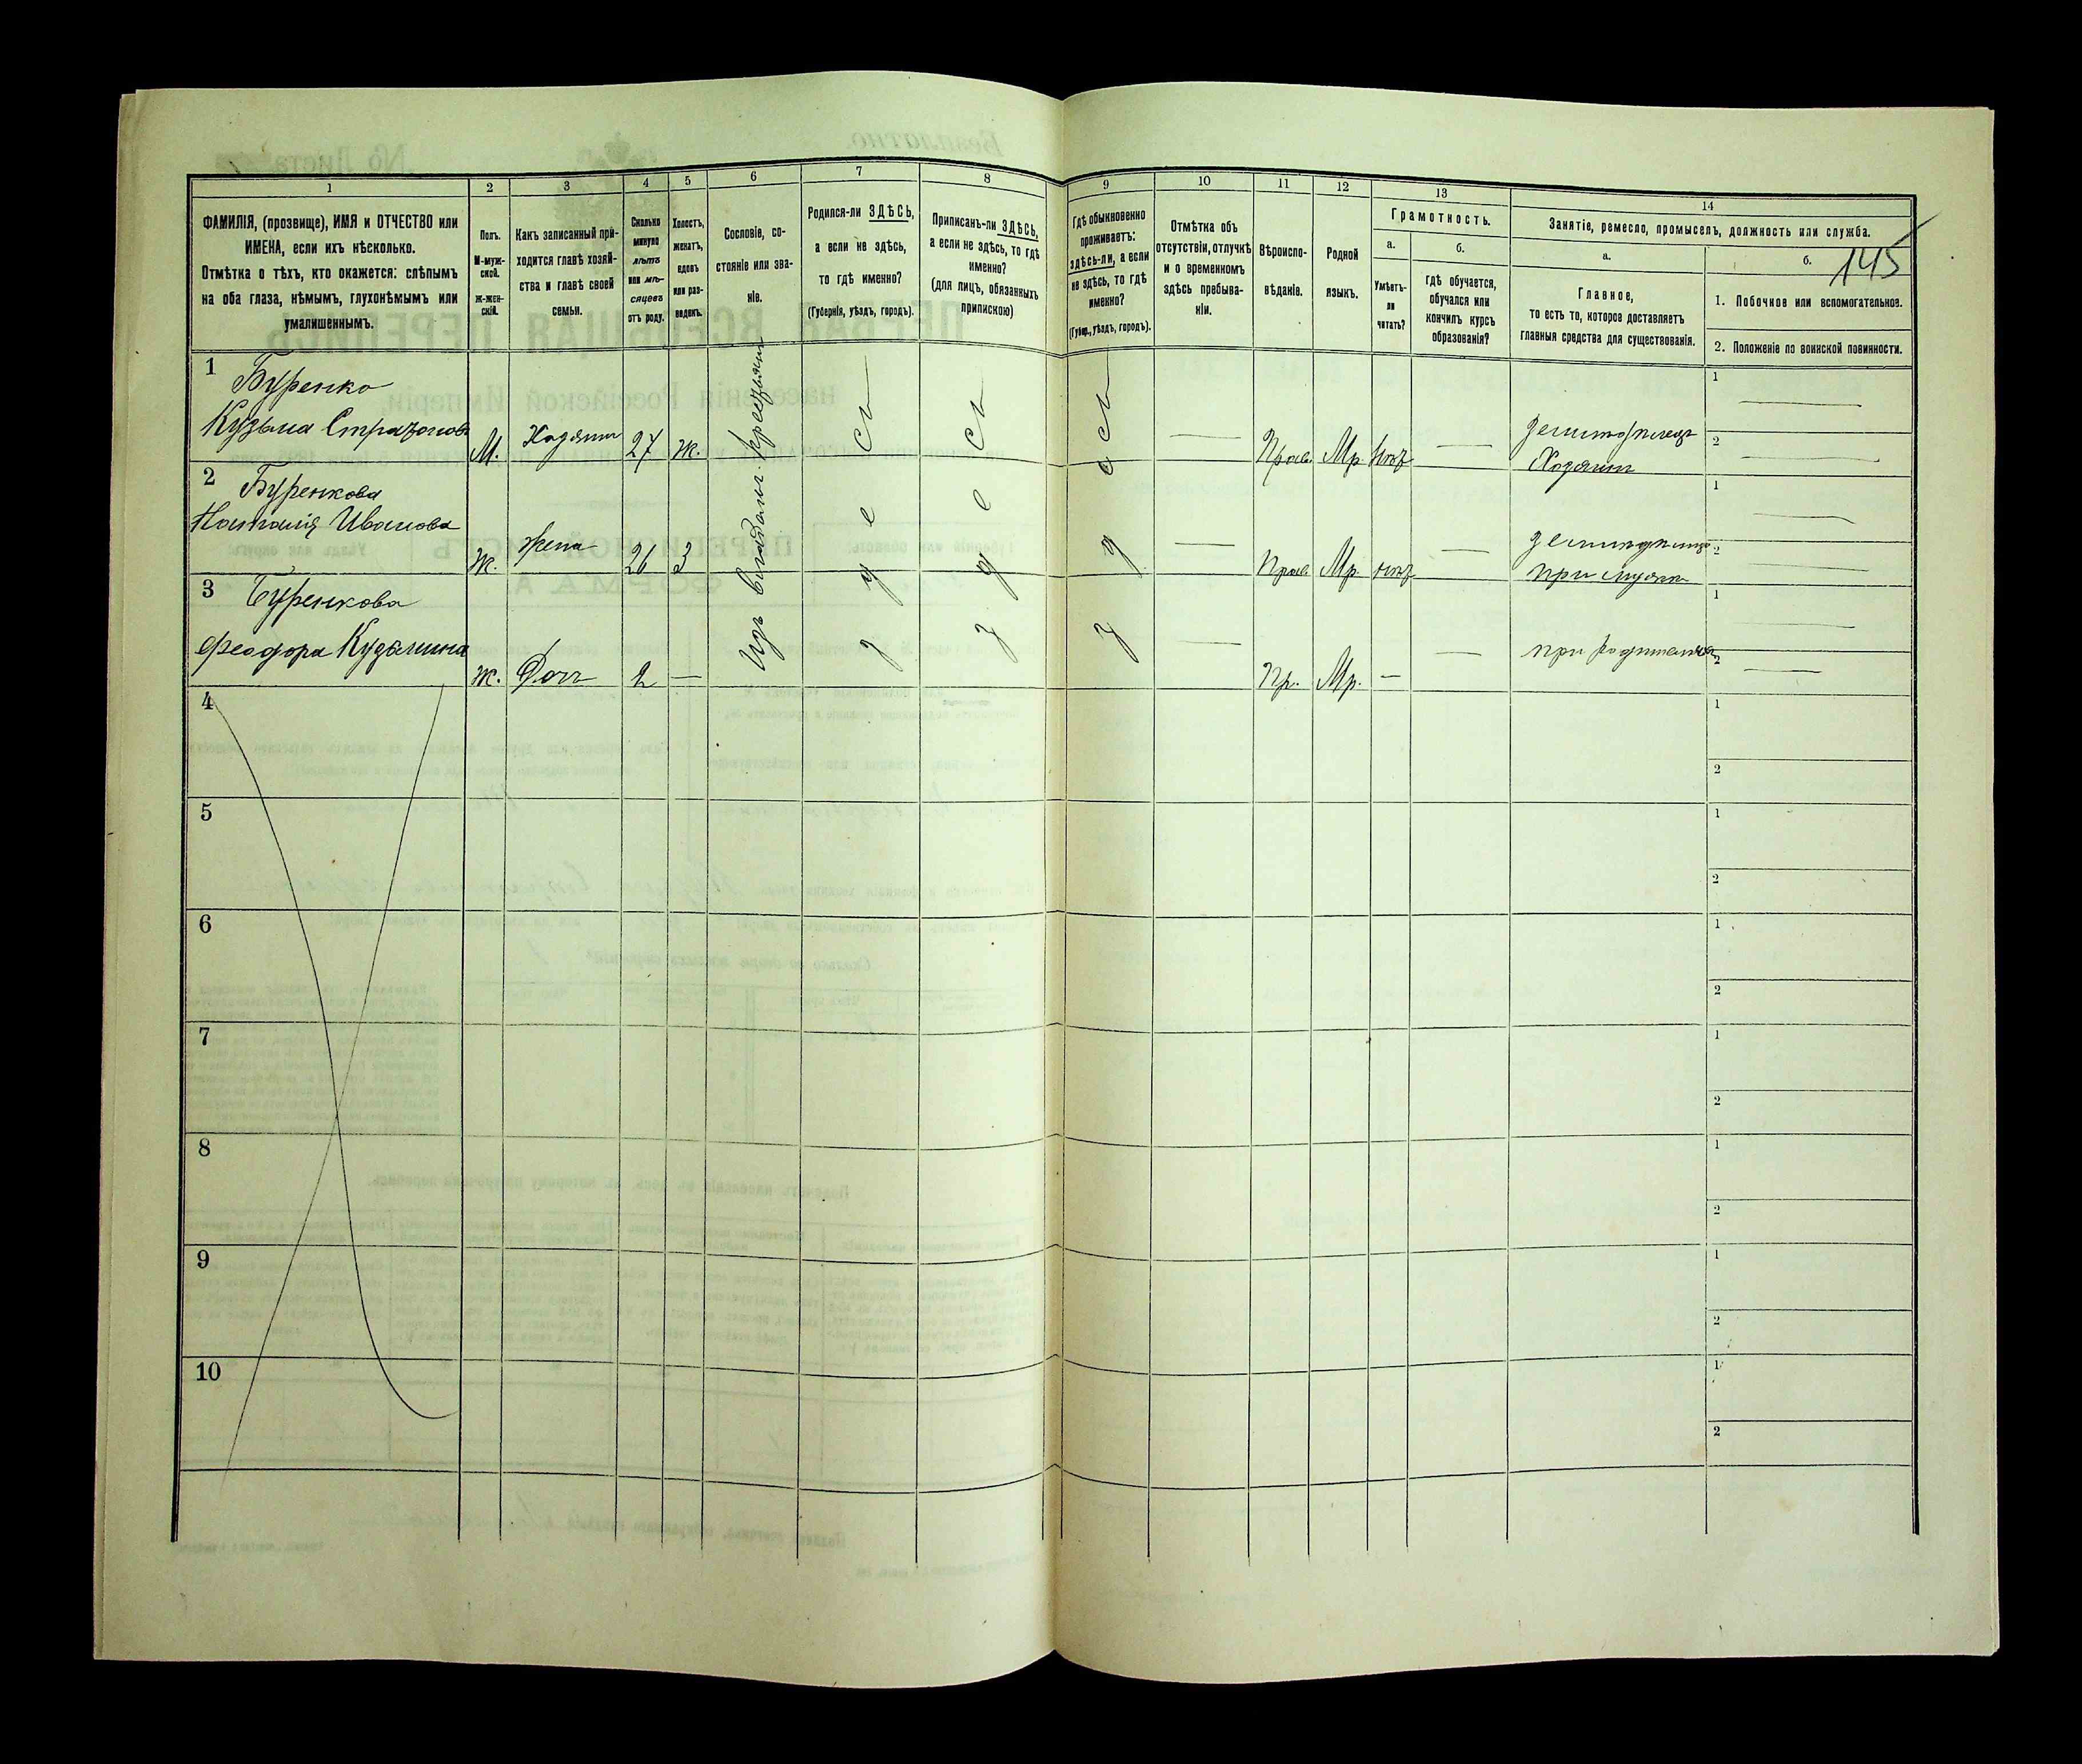 145
1 2 3 4 5 6 7 8 9 10 11 12 13 14
ФАМИЛІЯ, (прозвище), ИМЯ и ОТЧЕСТВО или
ИМЕНА, если ихъ нѣсколько.
Отмѣтка о тѣхъ, кто окажется: слѣпымъ
на оба глаза, нѣмымъ, глухонѣмымъ или
умалишеннымъ.
Полъ.
М-муж-
ской.
Ж-жен-
скій.
Какъ записанный при-
ходится главѣ хозяй-
ства и главѣ своей
семьи.
Сколько
минуло
лѣтъ
или мѣ-
сяцевъ
отъ роду.
Холостъ,
женатъ,
вдовъ
или раз-
веденъ.
Сословіе, со-
стояніе или зва-
ніе.
Родился-ли ЗДѢСЬ,
а если не здѣсь,
то гдѣ именно?
(Губернія, уѣздъ, городъ).
Приписанъ-ли ЗДѢСЬ,
а если не здѣсь, то гдѣ
именно?
(для лицъ, обязанныхъ
припискою)
Гдѣ обыкновенно
проживаетъ:
здѣсь-ли, а если
не здѣсь, то гдѣ
именно?
(Губер., уѣздъ, городъ).
Отмѣтка объ
отсутствіи, отлучкѣ
и о временномъ
здѣсь пребыва-
ніи.
Вѣроиспо-
вѣданіе.
Родной
языкъ.
Грамотность.
а.
Умѣетъ-
ли
читать?
б.
Гдѣ обучается,
обучался или
кончилъ курсъ
образованія?
Занятіе, ремесло, промыселъ, должность или служба.
а.
Главное,
то есть то, которое доставляетъ
главныя средства для существованія.
б.
1. Побочное или вспомогательное.
2. Положеніе по воинской повинности.
1 Буренко
Кузьма М. Хозяинъ 27 ж. Прав. Мр. нѣтъ
Хозяинъ
1
2
2 Буренкова
Наталія Иванова Ж. Жена 26 З Прав. Мр. нѣтъ
при мужѣ
1
2
3 Буренкова
Феодора Кузьмина Ж. Дочь 2 — Пр. Мр. —
при родителяхъ
1
2
Изъ владѣльч. крестьянъ
здѣсь
здѣсь
здѣсь
4
1
2
5
1
2
6
1
2
7
1
2
8
1
2
9
1
2
10
1
2